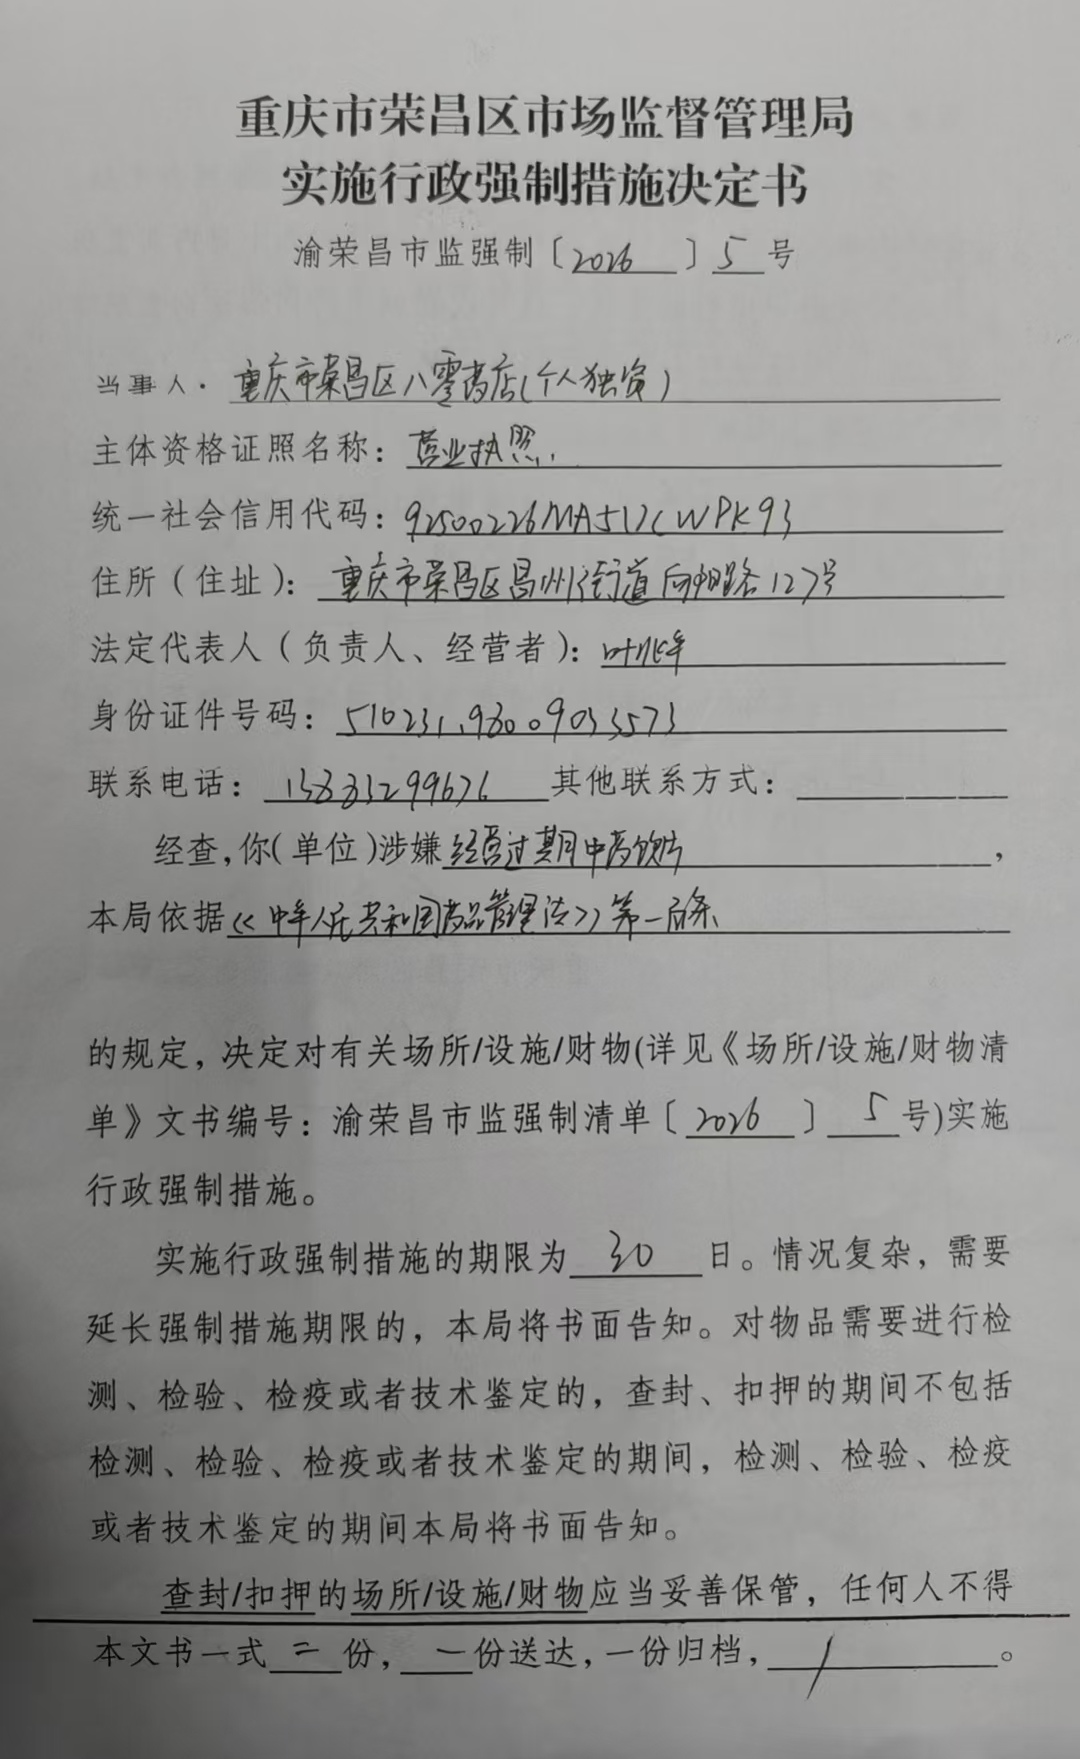 重庆市荣昌区市场监督管理局
实施行政强制措施决定书
渝荣昌市监强制〔2026〕5号
当事人：重庆市荣昌区八零药店(个人独资)
主体资格证照名称：营业执照
统一社会信用代码：92500226MA5U7CWPK93
住所（住址）：重庆市荣昌区昌州街道向阳路127号
法定代表人（负责人、经营者）：叶兆年
身份证件号码：510231198009033573
联系电话：13883299676 其他联系方式：
经查，你(单位)涉嫌经营过期中药饮片，
本局依据《中华人民共和国药品管理法》第一百条
的规定，决定对有关场所/设施/财物(详见《场所/设施/财物清
单》文书编号：渝荣昌市监强制清单〔2026〕5号)实施
行政强制措施。
实施行政强制措施的期限为30日。情况复杂，需要
延长强制措施期限的，本局将书面告知。对物品需要进行检
测、检验、检疫或者技术鉴定的，查封、扣押的期间不包括
检测、检验、检疫或者技术鉴定的期间，检测、检验、检疫
或者技术鉴定的期间本局将书面告知。
查封/扣押的场所/设施/财物应当妥善保管，任何人不得
本文书一式二份，一份送达，一份归档，/。